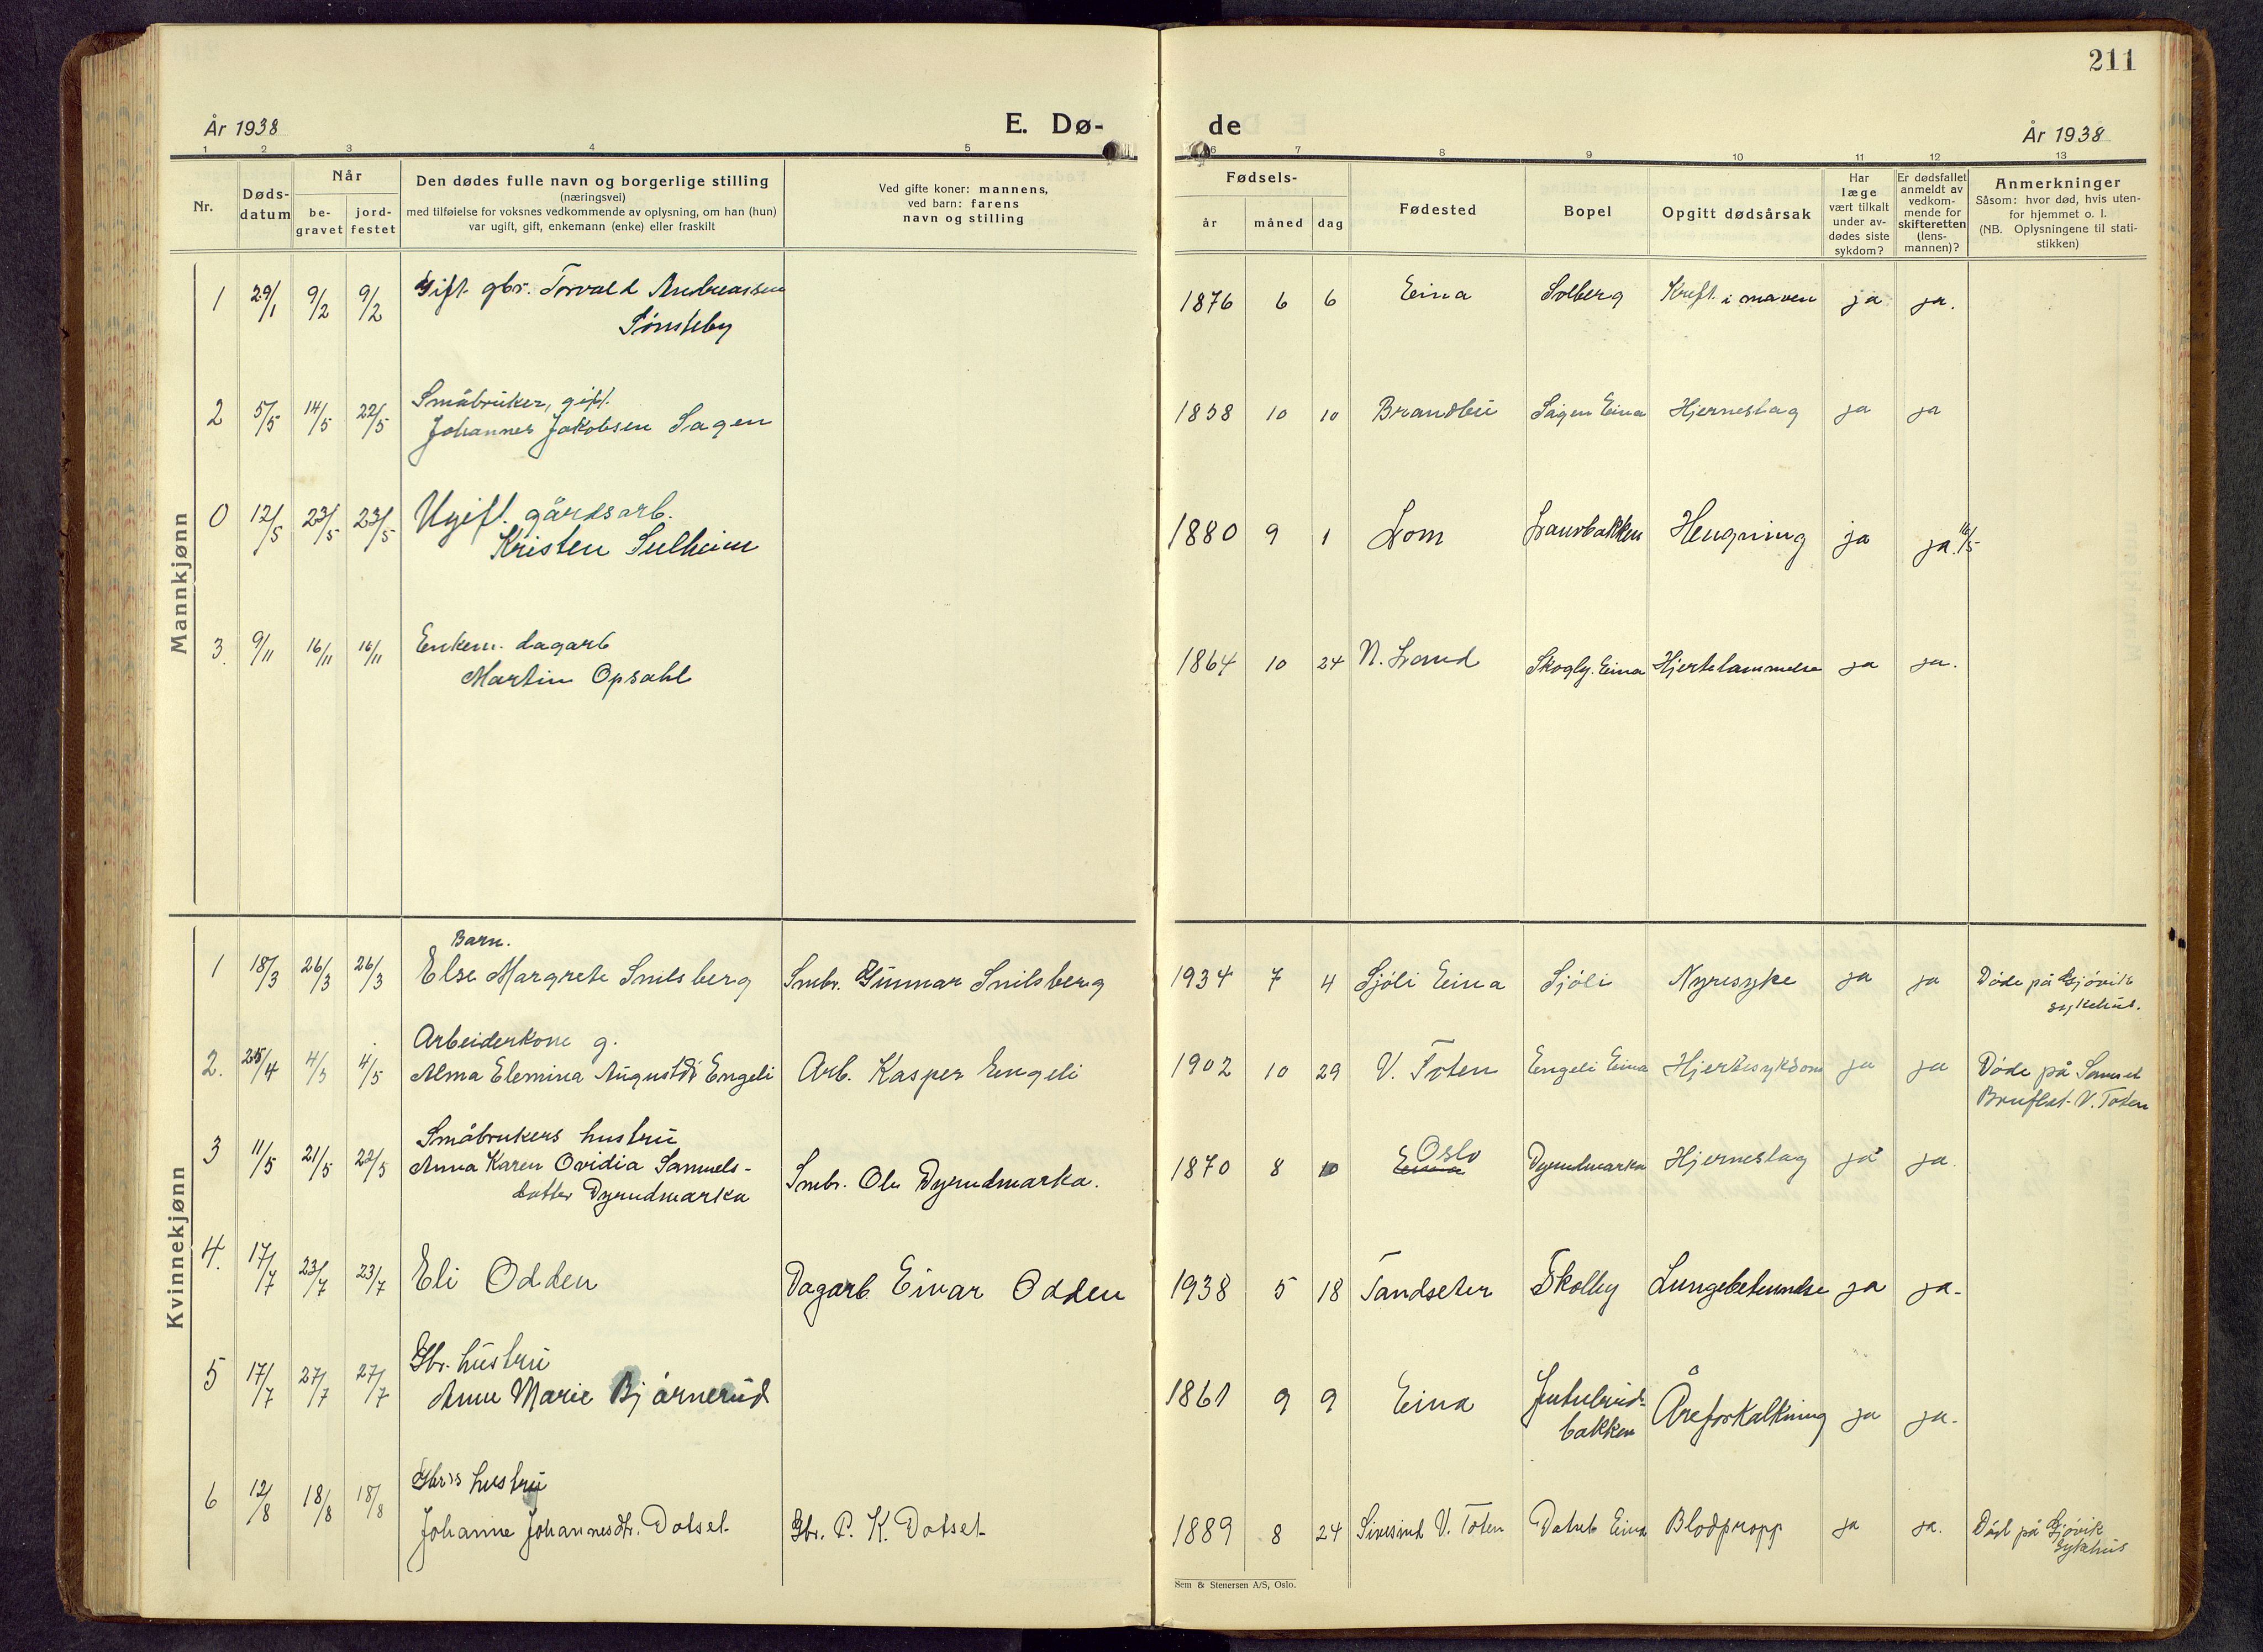 211
År 1938
E. Dø-
de
År 1938
1 2 3 4 5 6 7 8 9 10 11 12 13
Nr.
Døds-
datum
Når
be-
gravet
jord-
festet
Den dødes fulle navn og borgerlige stilling
(næringsvei)
med tilføielse for voksnes vedkommende av oplysning, om han (hun)
var ugift, gift, enkemann (enke) eller fraskilt
Ved gifte koner: mannens,
ved barn: farens
navn og stilling
Fødsels-
år
måned
dag
Fødested
Bopel
Opgitt dødsårsak
Har
læge
vært tilkalt
under av-
dødes siste
sykdom?
Er dødsfallet
anmeldt av
vedkom-
mende for
skifteretten
(lens-
mannen)?
Anmerkninger
Såsom: hvor død, hvis uten-
for hjemmet o. l.
(NB. Oplysningene til stati-
stikken)
Mannkjønn
1 29/1 9/2 9/2 Gift. gbr. Torvald Andreassen
Sønsteby
1876 6 6 Eina Solberg Kreft i maven ja ja.
2 5/5 14/5 22/5 Småbruker, gift.
Johannes Jakobsen Sagen
1858 10 10 Brandbu Sagen Eina Hjerneslag ja ja
0 12/5 23/5 23/5 Ugift. gårdsarb.
Kristen Sulheim
1880 9 1 Lom Hengning ja ja. 16/5
3. 9/11 16/11 16/11 Enkem. dagarb
Martin Opsahl
1864 10 24 N. Land Skogly. Eina Hjertelammelse ja ja.
Kvinnekjønn
1 18/3 26/3 26/3 Barn.
Else Margrete Snilsberg Smbr. Gunnar Snilsberg 1934 7 4 Sjöli Eina Sjöli Nyresyke ja ja Döde på Gjövik
sykehus.
2. 25/4 4/5 4/5 Arbeiderkone g.
Alma Elemina Augustdr Engeli Arb. Kasper Engeli 1902 10 29 V. Toten Engeli Eina Hjertesykdom ja ja Döde på
Bruflat. V. Toten
3 11/5 21/5 22/5 Småbrukers hustru
Anna Karen Ovidia Samuels-
datter Dyrudmarka Smbr. Ole Dyrudmarka. 1870 8 10 Eina Oslo Dyrudmarka Hjerneslag ja ja.
4. 17/7 23/7 23/7 Eli Odden Dagarb Einar Odden 1938 5 18 Tandseter Skolby Lungebetennelse ja ja-
5 17/7 27/7 27/7 Gbr. hustru
Anne Marie Bjørnerud
1861 9 9 Eina
bakken Åreforkalkning ja ja-
6 12/8 18/8 18/8 Gbr's hustru
Johanne Johannesdtr. Dotset Gbr. P. K. Dotset 1889 8 24 Sivesind V. Toten Dotset Eina Blodpropp ja ja. Död på Gjövik
Sykehus
Sem & Stenersen A/S, Oslo.